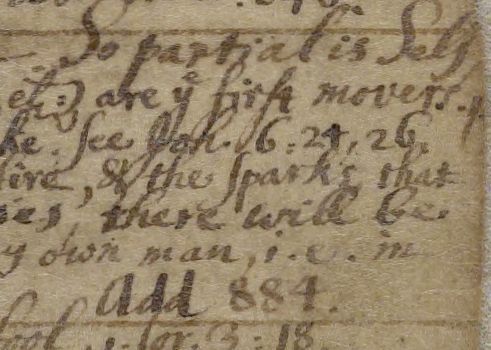 So partial is Self
are yͤ first movers.
ke. See Joh. 6:24, 26.
fire, & the sparks that
ies, there will be
y own man, i.e. in
Add 884.
ool. 1. Cor. 3:18